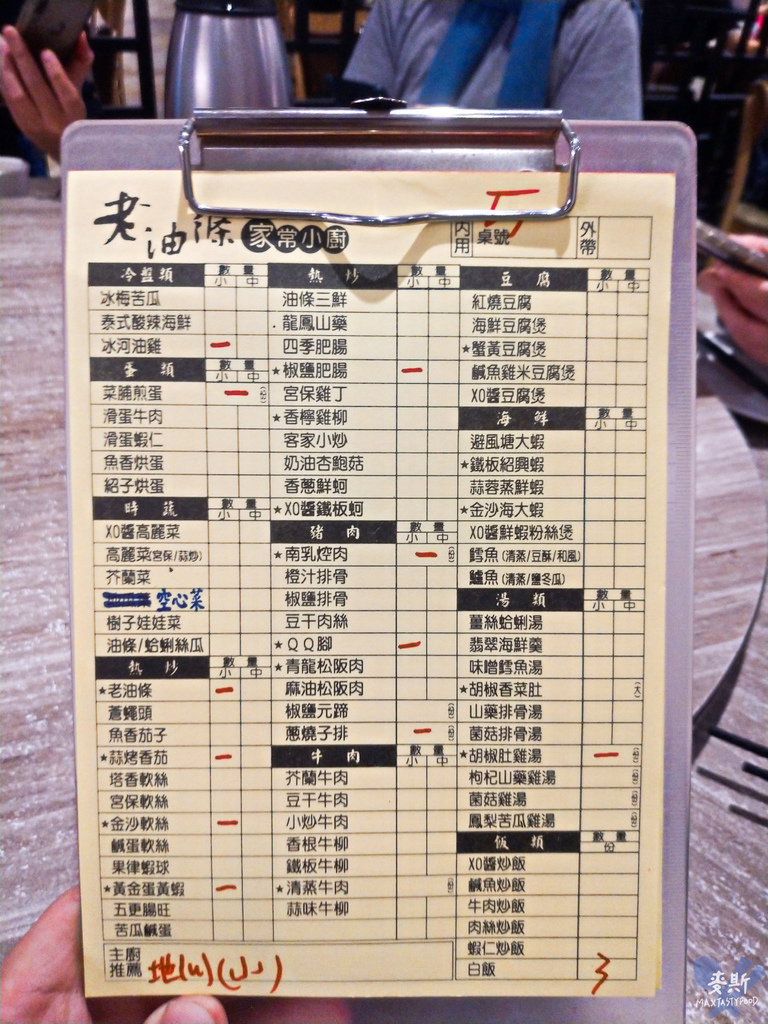 老油條 家常小廚
內用 桌號 外帶
冷盤類 數量 小 中
冰梅苦瓜
泰式酸辣海鮮
冰河油雞 一
蛋類 數量 小 中
菜脯煎蛋 一
滑蛋牛肉
滑蛋蝦仁
魚香烘蛋
紹子烘蛋
時蔬 數量 小 中
XO醬高麗菜
高麗菜(宮保/蒜炒)
芥蘭菜
空心菜
樹子娃娃菜
油條/蛤蜊絲瓜
熱炒 數量 小 中
★老油條 一
蒼蠅頭
魚香茄子
★蒜烤香茄 一
塔香軟絲
宮保軟絲
★金沙軟絲 一
鹹蛋軟絲
果律蝦球
★黃金蛋黃蝦 一
五更腸旺
苦瓜鹹蛋
熱炒 數量 小 中
油條三鮮
龍鳳山藥
四季肥腸
★椒鹽肥腸 一
宮保雞丁
★香檸雞柳
客家小炒
奶油杏鮑菇
香蔥鮮蚵
★XO醬鐵板蚵
豬肉 數量 小 中
★南乳焢肉 一
橙汁排骨
椒鹽排骨
豆干肉絲
★QQ腳 一
★青龍松阪肉
麻油松阪肉
椒鹽元蹄
蔥燒子排 一
牛肉 數量 小 中
芥蘭牛肉
豆干牛肉
小炒牛肉
香根牛柳
鐵板牛柳
★清蒸牛肉
蒜味牛柳
豆腐 數量 小 中
紅燒豆腐
海鮮豆腐煲
★蟹黃豆腐煲
鹹魚雞米豆腐煲
XO醬豆腐煲
海鮮 數量 小 中
避風塘大蝦
★鐵板紹興蝦
蒜蓉蒸鮮蝦
★金沙海大蝦
XO醬鮮蝦粉絲煲
鱈魚(清蒸/豆酥/和風)
鱸魚(清蒸/鹽冬瓜)
湯類 數量 小 中
薑絲蛤蜊湯
翡翠海鮮羹
味噌鱈魚湯
★胡椒香菜肚 (大)
山藥排骨湯
菌菇排骨湯
★胡椒肚雞湯 一
枸杞山藥雞湯
菌菇雞湯
鳳梨苦瓜雞湯
飯類 數量 份
XO醬炒飯
鹹魚炒飯
牛肉炒飯
肉絲炒飯
蝦仁炒飯
白飯 3
主廚推薦
麥斯
MAXTASTYFOOD